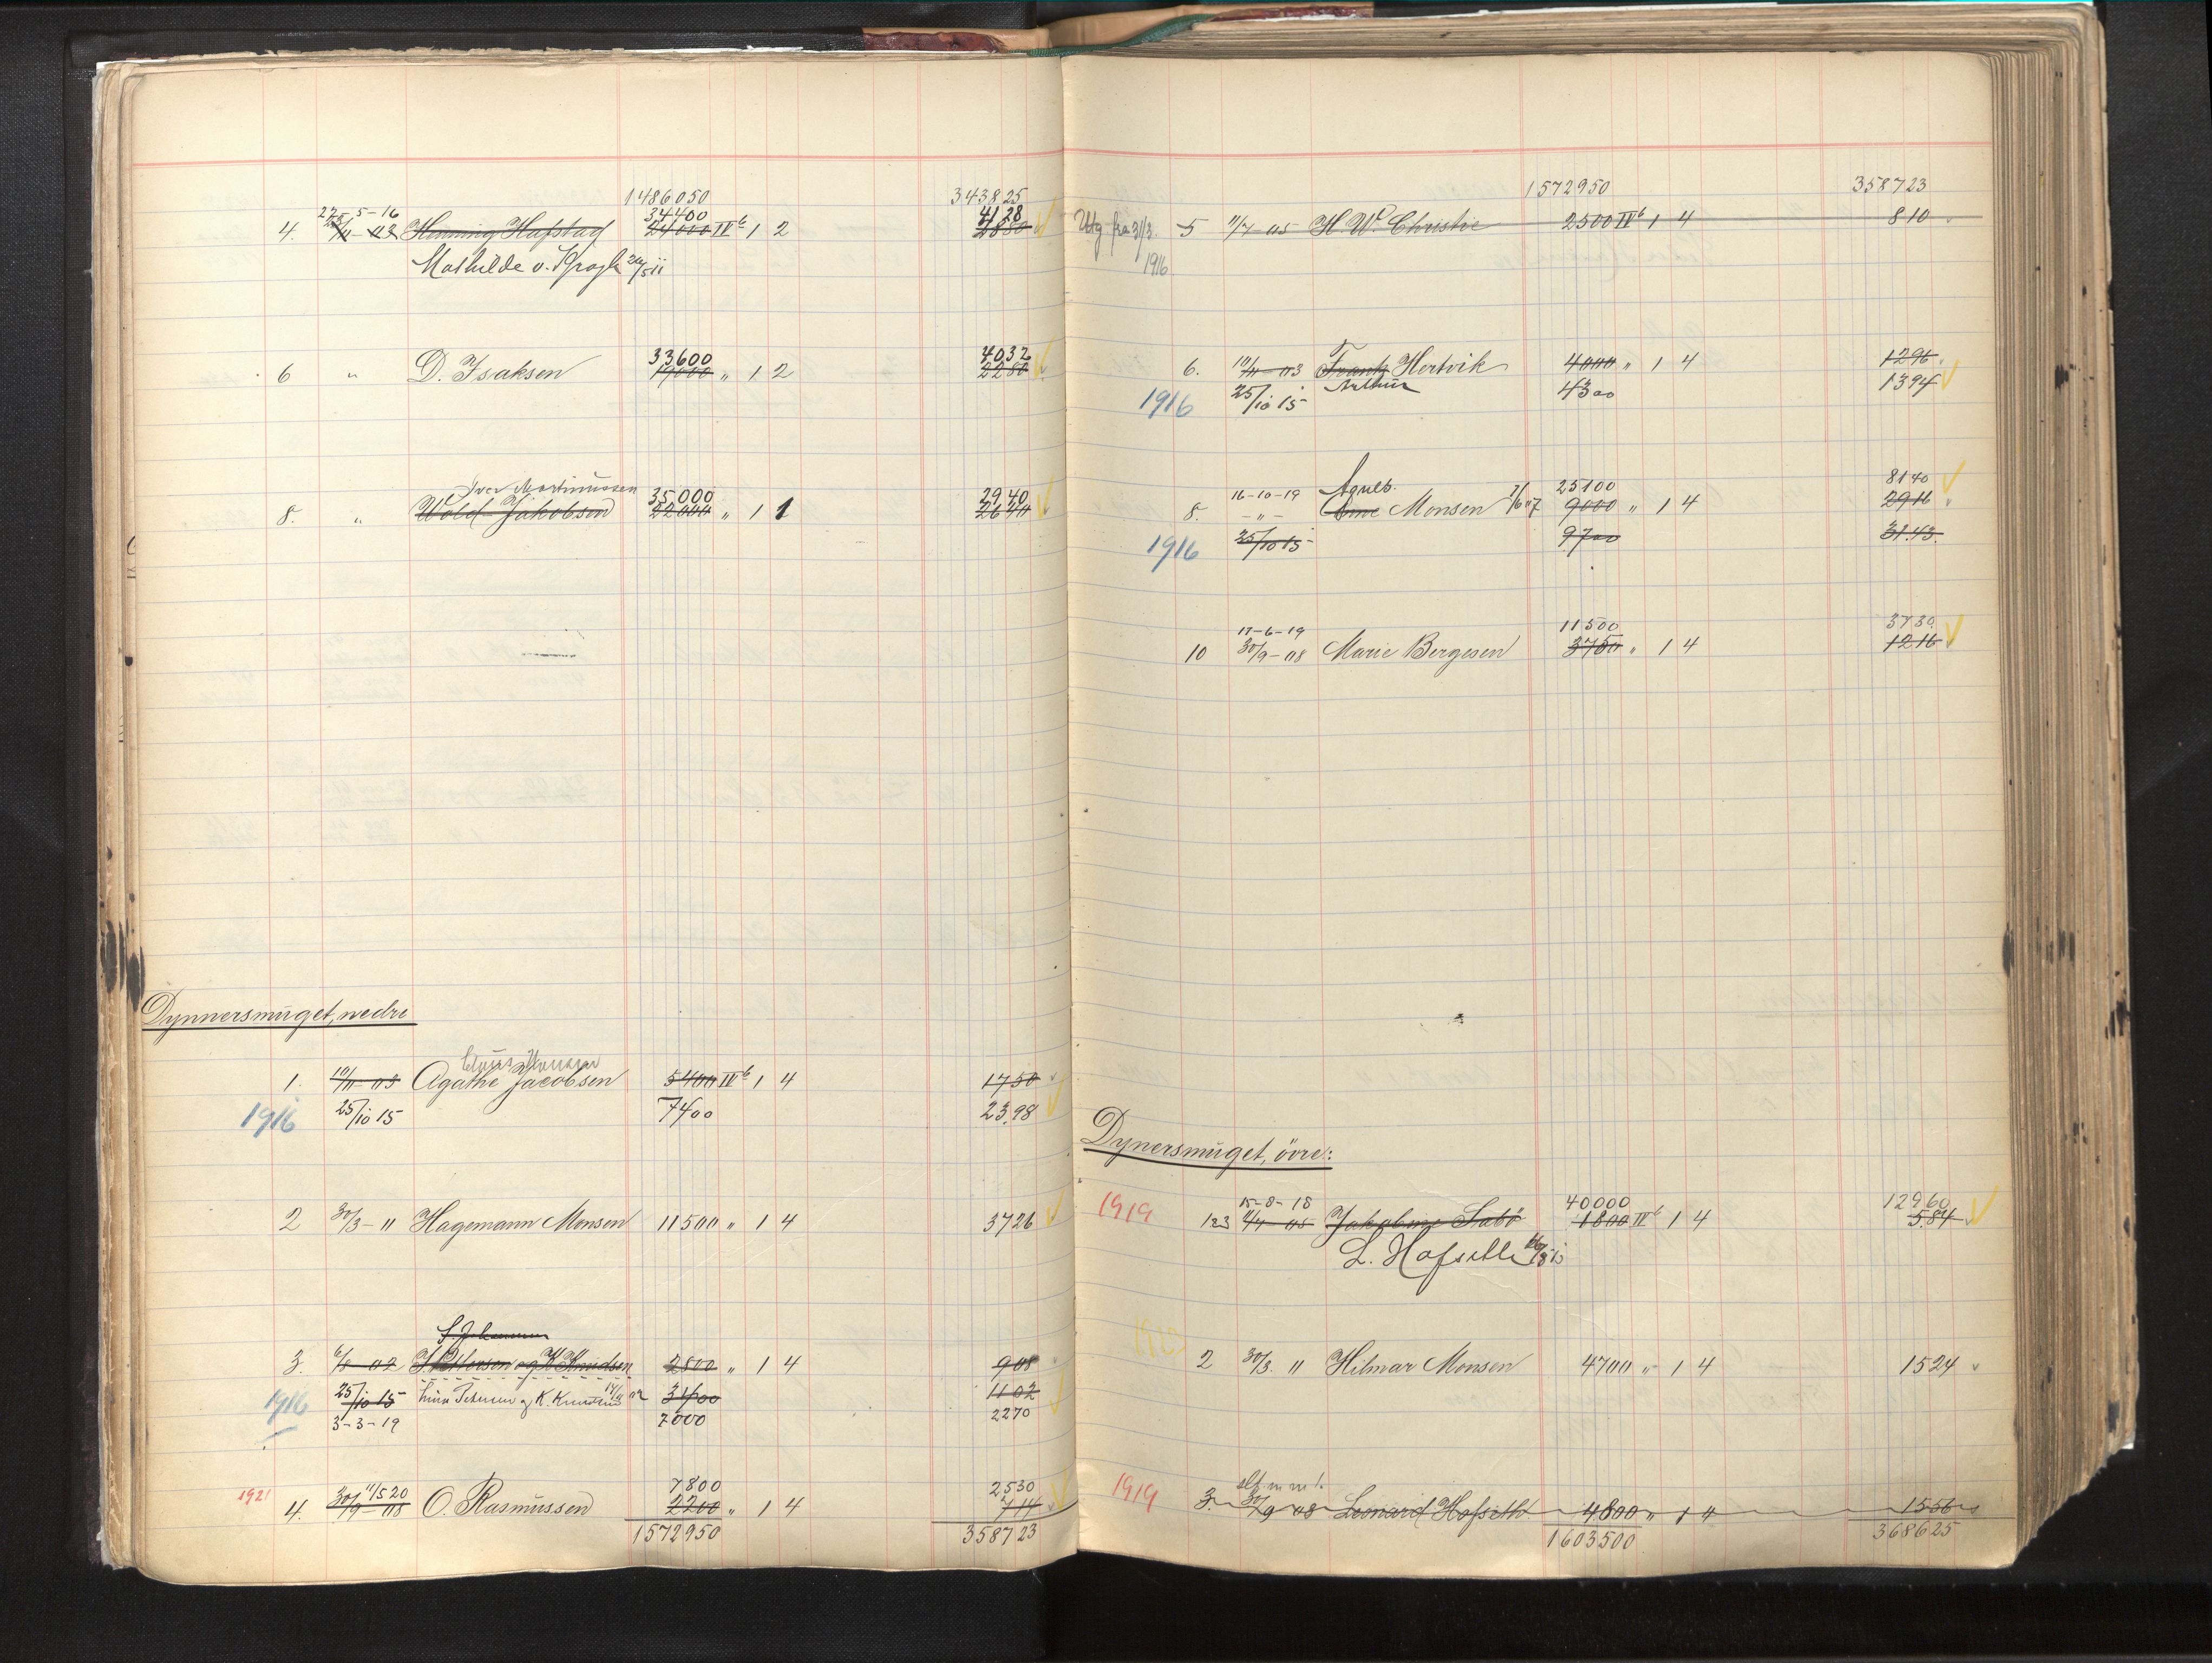 1486050 343825
27-5-16 34400 4128
4. 25/11-03 Henning Hafstad 24000 IV b 1 2 2880
Mathilde v. Krogh 24/5 11
33600 4032
6 " D. Isaksen 19000 " 1 2 2280
Iver Martinussen 35000 2940
8. " Wold Jakobsen 22000 " 1 1 2640
Dynnersmuget, nedre
1. 10/11-03 Agathe Jacobsen 5400 IV b 1 4 1750
1916 25/10 15 7400 23.98
2 30/3-11 Hagemann Monsen 11500 " 1 4 3726
S. Johannesen
3. 6/8-02 Pettersen og K Knudsen 2800 " 1 4 908
1916 25/10 15 Petersen og K. Knudsen 3400 1102
3-3-19 7000 2270
1921 11/5 20 7800 2530
4. 30/9-08 O. Rasmussen 2200 " 1 4 714
1572950 358723
1572950 358723
Utg fra 31/3. 5 11/7-05 H. W. Christie 2500 IV b 1 4 810
1916
6. 10/11-03 Frantz Hertvik 4000 " 1 4 1296
1916 25/10 15 Arthur 4300 1394
16-10-19 Agneb. 25100 8140
8. -"- Monsen 7/6 07 9000 " 1 4 2916
1916 25/10 15 9700 31.43.
17-6-19 11500 3730
10 30/9-08 Marie Bergesen 3750 " 1 4 1216
Dynersmuget, övre:
1919 15-8-18 40000 12960
1 2 3 11/7-05 Jakobine Sabö 1800 IV b 1 4 584
L. Hofseth
2 30/3. 11 Hilmar Monsen 4700 " 1 4 1524
1919
3. 30/9 08 Leonard Hofseth 4800 " 1 4 1556
1603500 368625